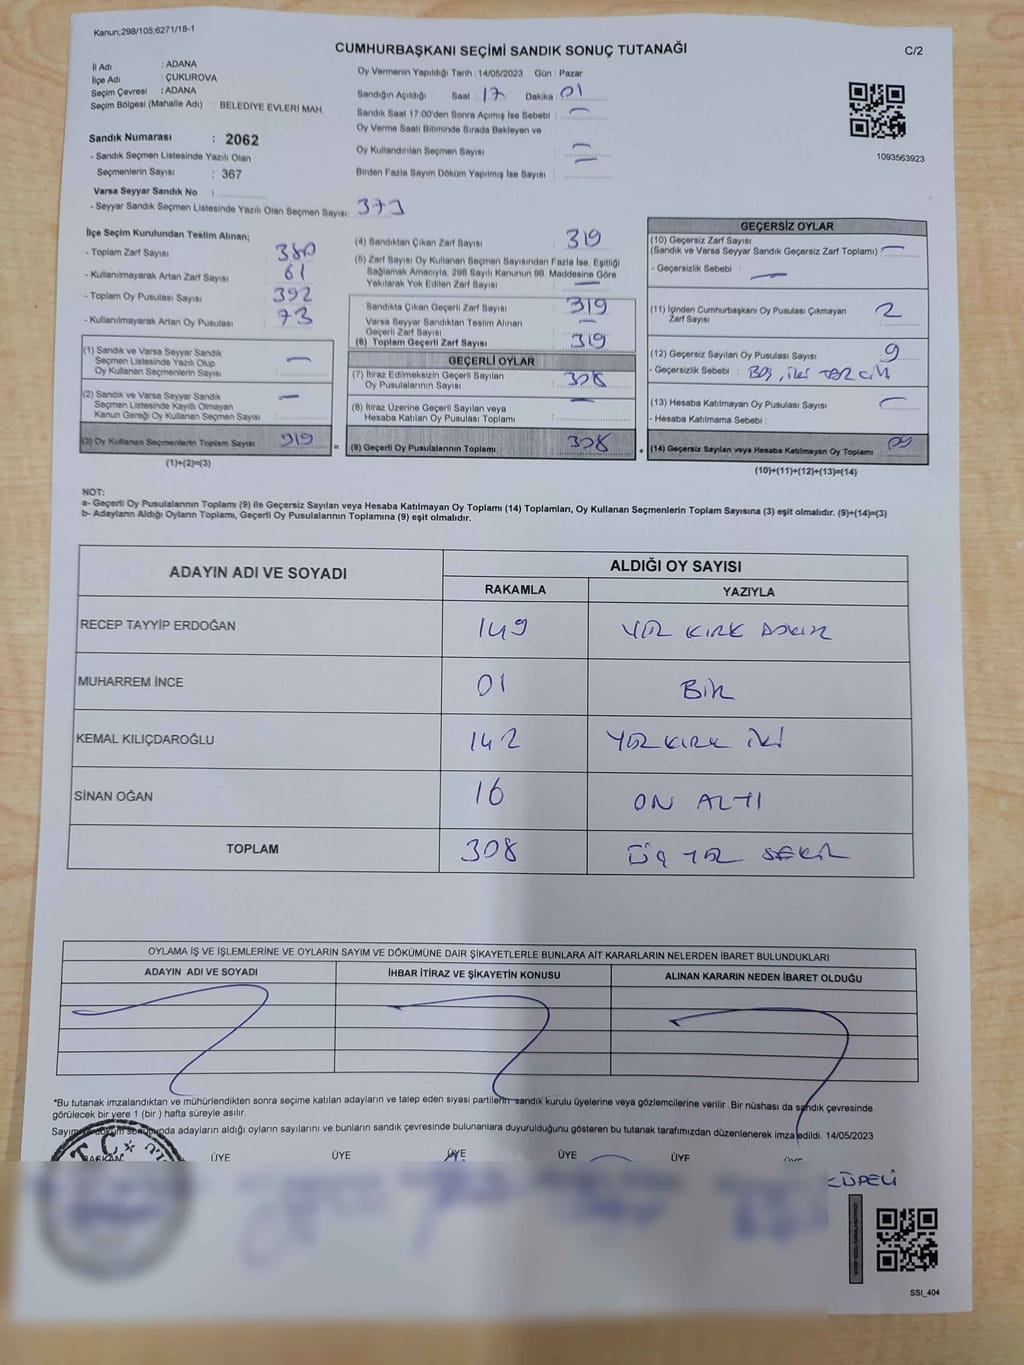 Kanun;298/105;6271/18-1
CUMHURBAŞKANI SEÇİMİ SANDIK SONUÇ TUTANAĞI
C/2
İl Adı : ADANA
İlçe Adı : ÇUKUROVA
Seçim Çevresi : ADANA
Seçim Bölgesi (Mahalle Adı) : BELEDİYE EVLERİ MAH.
Sandık Numarası : 2062
- Sandık Seçmen Listesinde Yazılı Olan
Seçmenlerin Sayısı : 367
Varsa Seyyar Sandık No :
- Seyyar Sandık Seçmen Listesinde Yazılı Olan Seçmen Sayısı: 373
Oy Vermenin Yapıldığı Tarih : 14/05/2023 Gün : Pazar
Sandığın Açıldığı Saat : 17 Dakika : 01
Sandık Saat 17:00'den Sonra Açımış İse Sebebi :
Oy Verme Saati Bitiminde Sırada Bekleyen ve
Oy Kullandırılan Seçmen Sayısı :
Birden Fazla Sayım Döküm Yapılmış İse Sayısı :
1093563923
İlçe Seçim Kurulundan Teslim Alınan;
- Toplam Zarf Sayısı : 380
- Kullanılmayarak Artan Zarf Sayısı : 61
- Toplam Oy Pusulası Sayısı : 392
- Kullanılmayarak Artan Oy Pusulası : 73
(1) Sandık ve Varsa Seyyar Sandık
Seçmen Listesinde Yazılı Olup
Oy Kullanan Seçmenlerin Sayısı :
(2) Sandık ve Varsa Seyyar Sandık
Seçmen Listesinde Kayıtlı Olmayan
Kanun Gereği Oy Kullanan Seçmen Sayısı :
(3) Oy Kullanan Seçmenlerin Toplam Sayısı : 319 =
(1)+(2)=(3)
(4) Sandıktan Çıkan Zarf Sayısı : 319
(5) Zarf Sayısı Oy Kullanan Seçmen Sayısından Fazla İse, Eşitliği
Sağlamak Amacıyla, 298 Sayılı Kanunun 98. Maddesine Göre
Yakılarak Yok Edilen Zarf Sayısı :
Sandıkta Çıkan Geçerli Zarf Sayısı : 319
Varsa Seyyar Sandıktan Teslim Alınan
Geçerli Zarf Sayısı :
(6) Toplam Geçerli Zarf Sayısı : 319
GEÇERLİ OYLAR
(7) İtiraz Edilmeksizin Geçerli Sayılan
Oy Pusulalarının Sayısı : 308
(8) İtiraz Üzerine Geçerli Sayılan veya
Hesaba Katılan Oy Pusulası Toplamı :
(9) Geçerli Oy Pusulalarının Toplamı : 308 +
GEÇERSİZ OYLAR
(10) Geçersiz Zarf Sayısı
(Sandık ve Varsa Seyyar Sandık Geçersiz Zarf Toplamı) :
- Geçersizlik Sebebi :
(11) İçinden Cumhurbaşkanı Oy Pusulası Çıkmayan
Zarf Sayısı : 2
(12) Geçersiz Sayılan Oy Pusulası Sayısı : 9
- Geçersizlik Sebebi : BOŞ, İKİ TERCİH
(13) Hesaba Katılmayan Oy Pusulası Sayısı :
- Hesaba Katılmama Sebebi :
(14) Geçersiz Sayılan veya Hesaba Katılmayan Oy Toplamı : 09
(10)+(11)+(12)+(13)=(14)
NOT:
a- Geçerli Oy Pusulalarının Toplamı (9) ile Geçersiz Sayılan veya Hesaba Katılmayan Oy Toplamı (14) Toplamları, Oy Kullanan Seçmenlerin Toplam Sayısına (3) eşit olmalıdır. (9)+(14)=(3)
b- Adayların Aldığı Oyların Toplamı, Geçerli Oy Pusulalarının Toplamına (9) eşit olmalıdır.
ADAYIN ADI VE SOYADI ALDIĞI OY SAYISI
RAKAMLA YAZIYLA
RECEP TAYYİP ERDOĞAN 149 YÜZ KIRK DOKUZ
MUHARREM İNCE 01 BİR
KEMAL KILIÇDAROĞLU 142 YÜZ KIRK İKİ
SİNAN OĞAN 16 ON ALTI
TOPLAM 308 ÜÇ YÜZ SEKİZ
OYLAMA İŞ VE İŞLEMLERİNE VE OYLARIN SAYIM VE DÖKÜMÜNE DAİR ŞİKAYETLERLE BUNLARA AİT KARARLARIN NELERDEN İBARET BULUNDUKLARI
ADAYIN ADI VE SOYADI İHBAR İTİRAZ VE ŞİKAYETİN KONUSU ALINAN KARARIN NEDEN İBARET OLDUĞU
*Bu tutanak imzalandıktan ve mühürlendikten sonra seçime katılan adayların ve talep eden siyasi partilerin sandık kurulu üyelerine veya gözlemcilerine verilir .Bir nüshası da sandık çevresinde
görülecek bir yere 1 (bir ) hafta süreyle asılır.
Sayım döküm sonucunda adayların aldığı oyların sayılarını ve bunların sandık çevresinde bulunanlara duyurulduğunu gösteren bu tutanak tarafımızdan düzenlenerek imza edildi. 14/05/2023
T.C.
BAŞKAN ÜYE ÜYE ÜYE ÜYE ÜYE ÜYE
KÜPELİ
SSI_404